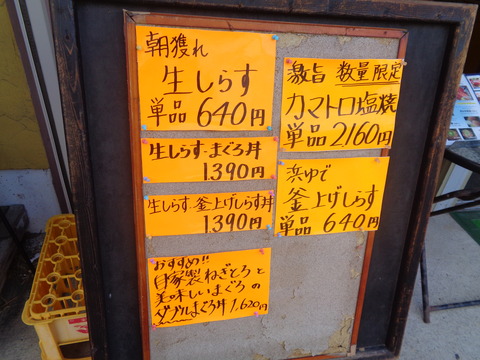 朝獲れ
生しらす
単品 640円
生しらす・まぐろ丼
1390円
生しらす・釜上げしらす丼
1390円
おすすめ!!
自家製ねぎとろと
美味しいまぐろの
ダブルまぐろ丼 1,620円
激旨 数量限定
カマトロ塩焼
単品 2160円
浜ゆで
釜上げしらす
単品 640円